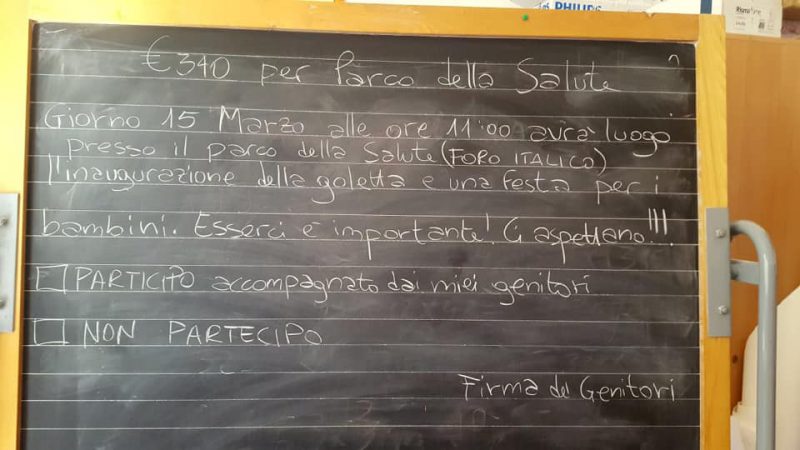 PHILIPS
€340 per Parco della Salute
Giorno 15 Marzo alle ore 11:00 avrà luogo
presso il parco della Salute (FORO ITALICO)
l'inaugurazione della goletta e una festa per i
bambini. Esserci è importante! Ci aspettano!!!
PARTICIPO accompagnato dai miei genitori
NON PARTECIPO
Firma dei Genitori